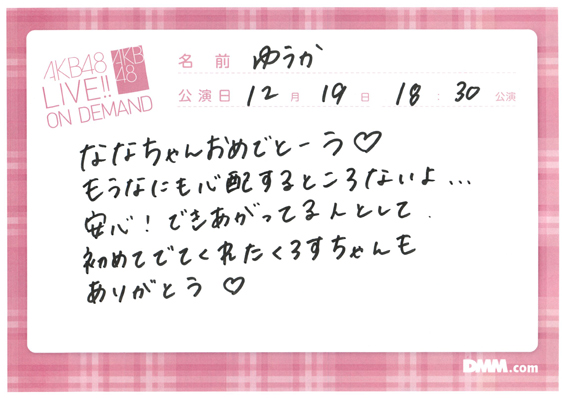 AKB48
LIVE!!
ON DEMAND
AKB
48
名前 ゆうか
公演日 12月19日 18:30 公演
ななちゃんおめでとーう♡
もうなにも心配するところないよ...
安心！できあがってる人として
初めてでてくれたくろすちゃんも
ありがとう♡
DMM.com